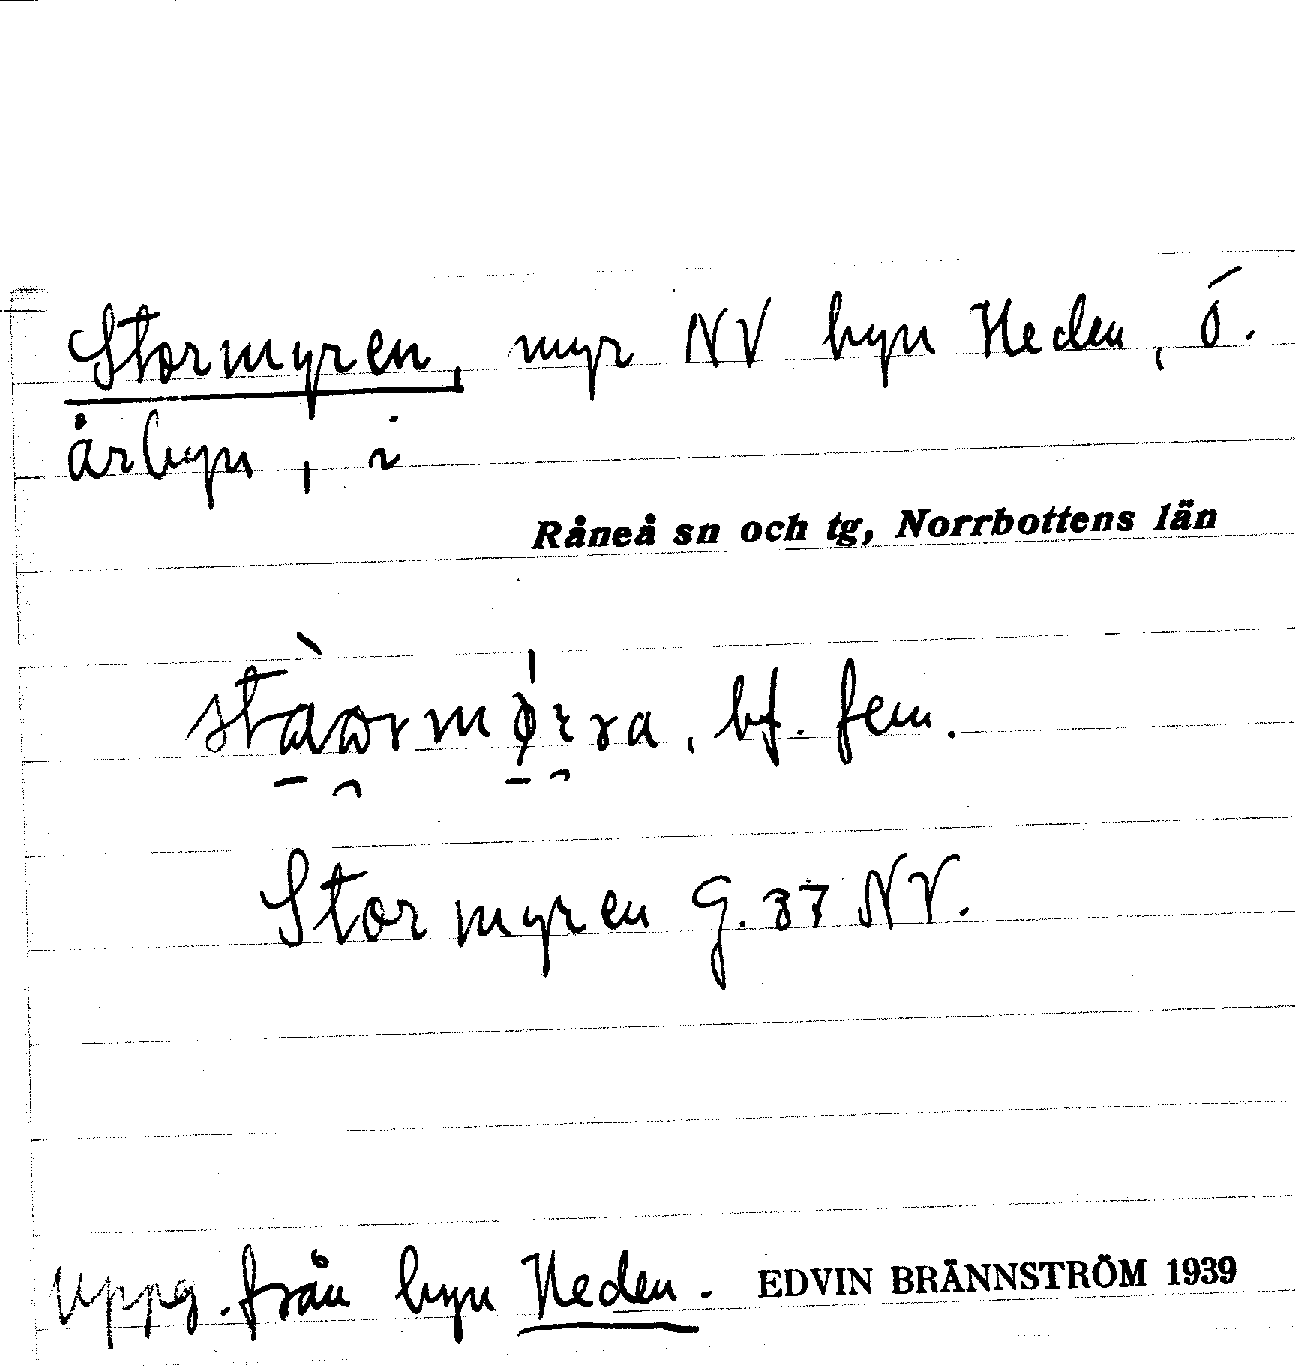 Stormyren, myr NV byn Heden, Ö.
årbyn, i
Råneå sn och tg, Norrbottens län
bf. fem.
Stormyren G. 37 NV.
Uppg. från byn Heden. EDVIN BRÄNNSTRÖM 1939